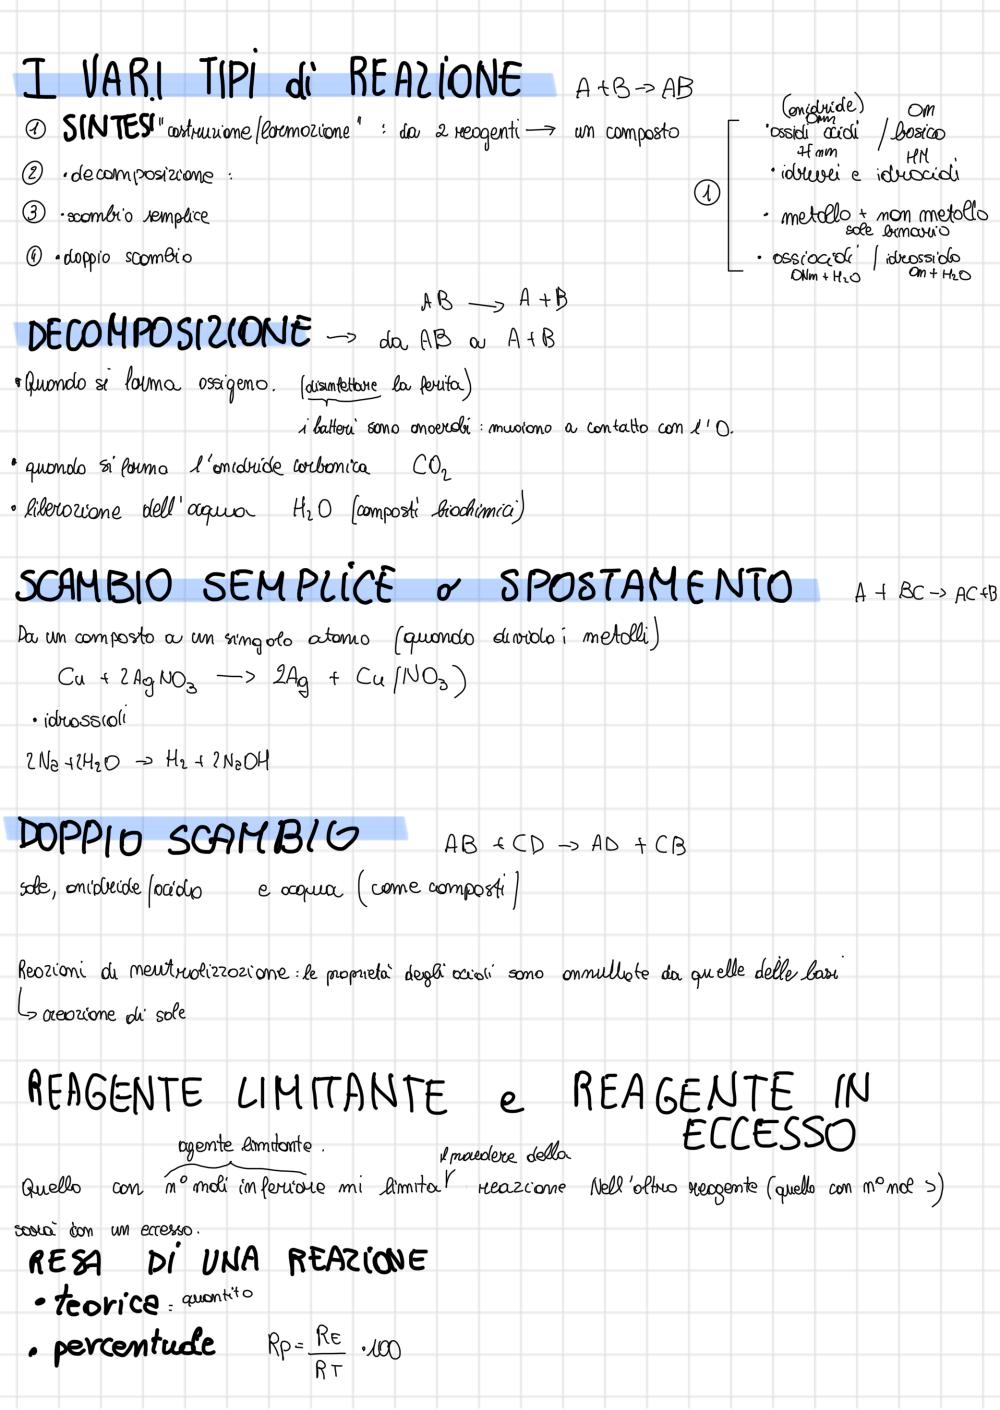 I VARI TIPI di REAZIONE A+B → AB
① SINTESI "costruzione/formazione" : da 2 reagenti → un composto
② • decomposizione :
③ • scambio semplice
④ • doppio scambio
①
(anidride) OM
Onm
• ossidi acidi / basico
H nm HM
• idruri e idracidi
• metallo + non metallo
sale binario
• ossiacidi / idrossido
ONm + H₂O Om + H₂O
AB → A + B
DECOMPOSIZIONE → da AB a A+B
• Quando si forma ossigeno. (disinfettare la ferita)
i batteri sono anaerobi : muoiono a contatto con l'O.
• quando si forma l'anidride carbonica CO₂
• liberazione dell'acqua H₂O (composti biochimici)
SCAMBIO SEMPLICE o SPOSTAMENTO A + BC → AC+B
Da un composto a un singolo atomo (quando divido i metalli)
Cu + 2AgNO₃ → 2Ag + Cu(NO₃)
• idrossidi
2Na + 2H₂O → H₂ + 2NaOH
DOPPIO SCAMBIO AB + CD → AD + CB
sale, anidride/acido e acqua (come composti)
Reazioni di neutralizzazione : le proprietà degli acidi sono annullate da quelle delle basi
↳ creazione di sale
REAGENTE LIMITANTE e REAGENTE IN
ECCESSO
agente limitante. il procedere della
Quello con n° moli inferiore mi limita reazione Nell'altro reagente (quello con n° mol >)
sarà con un eccesso.
RESA DI UNA REAZIONE
• teorica : quantità
• percentuale Rp = RE / RT · 100